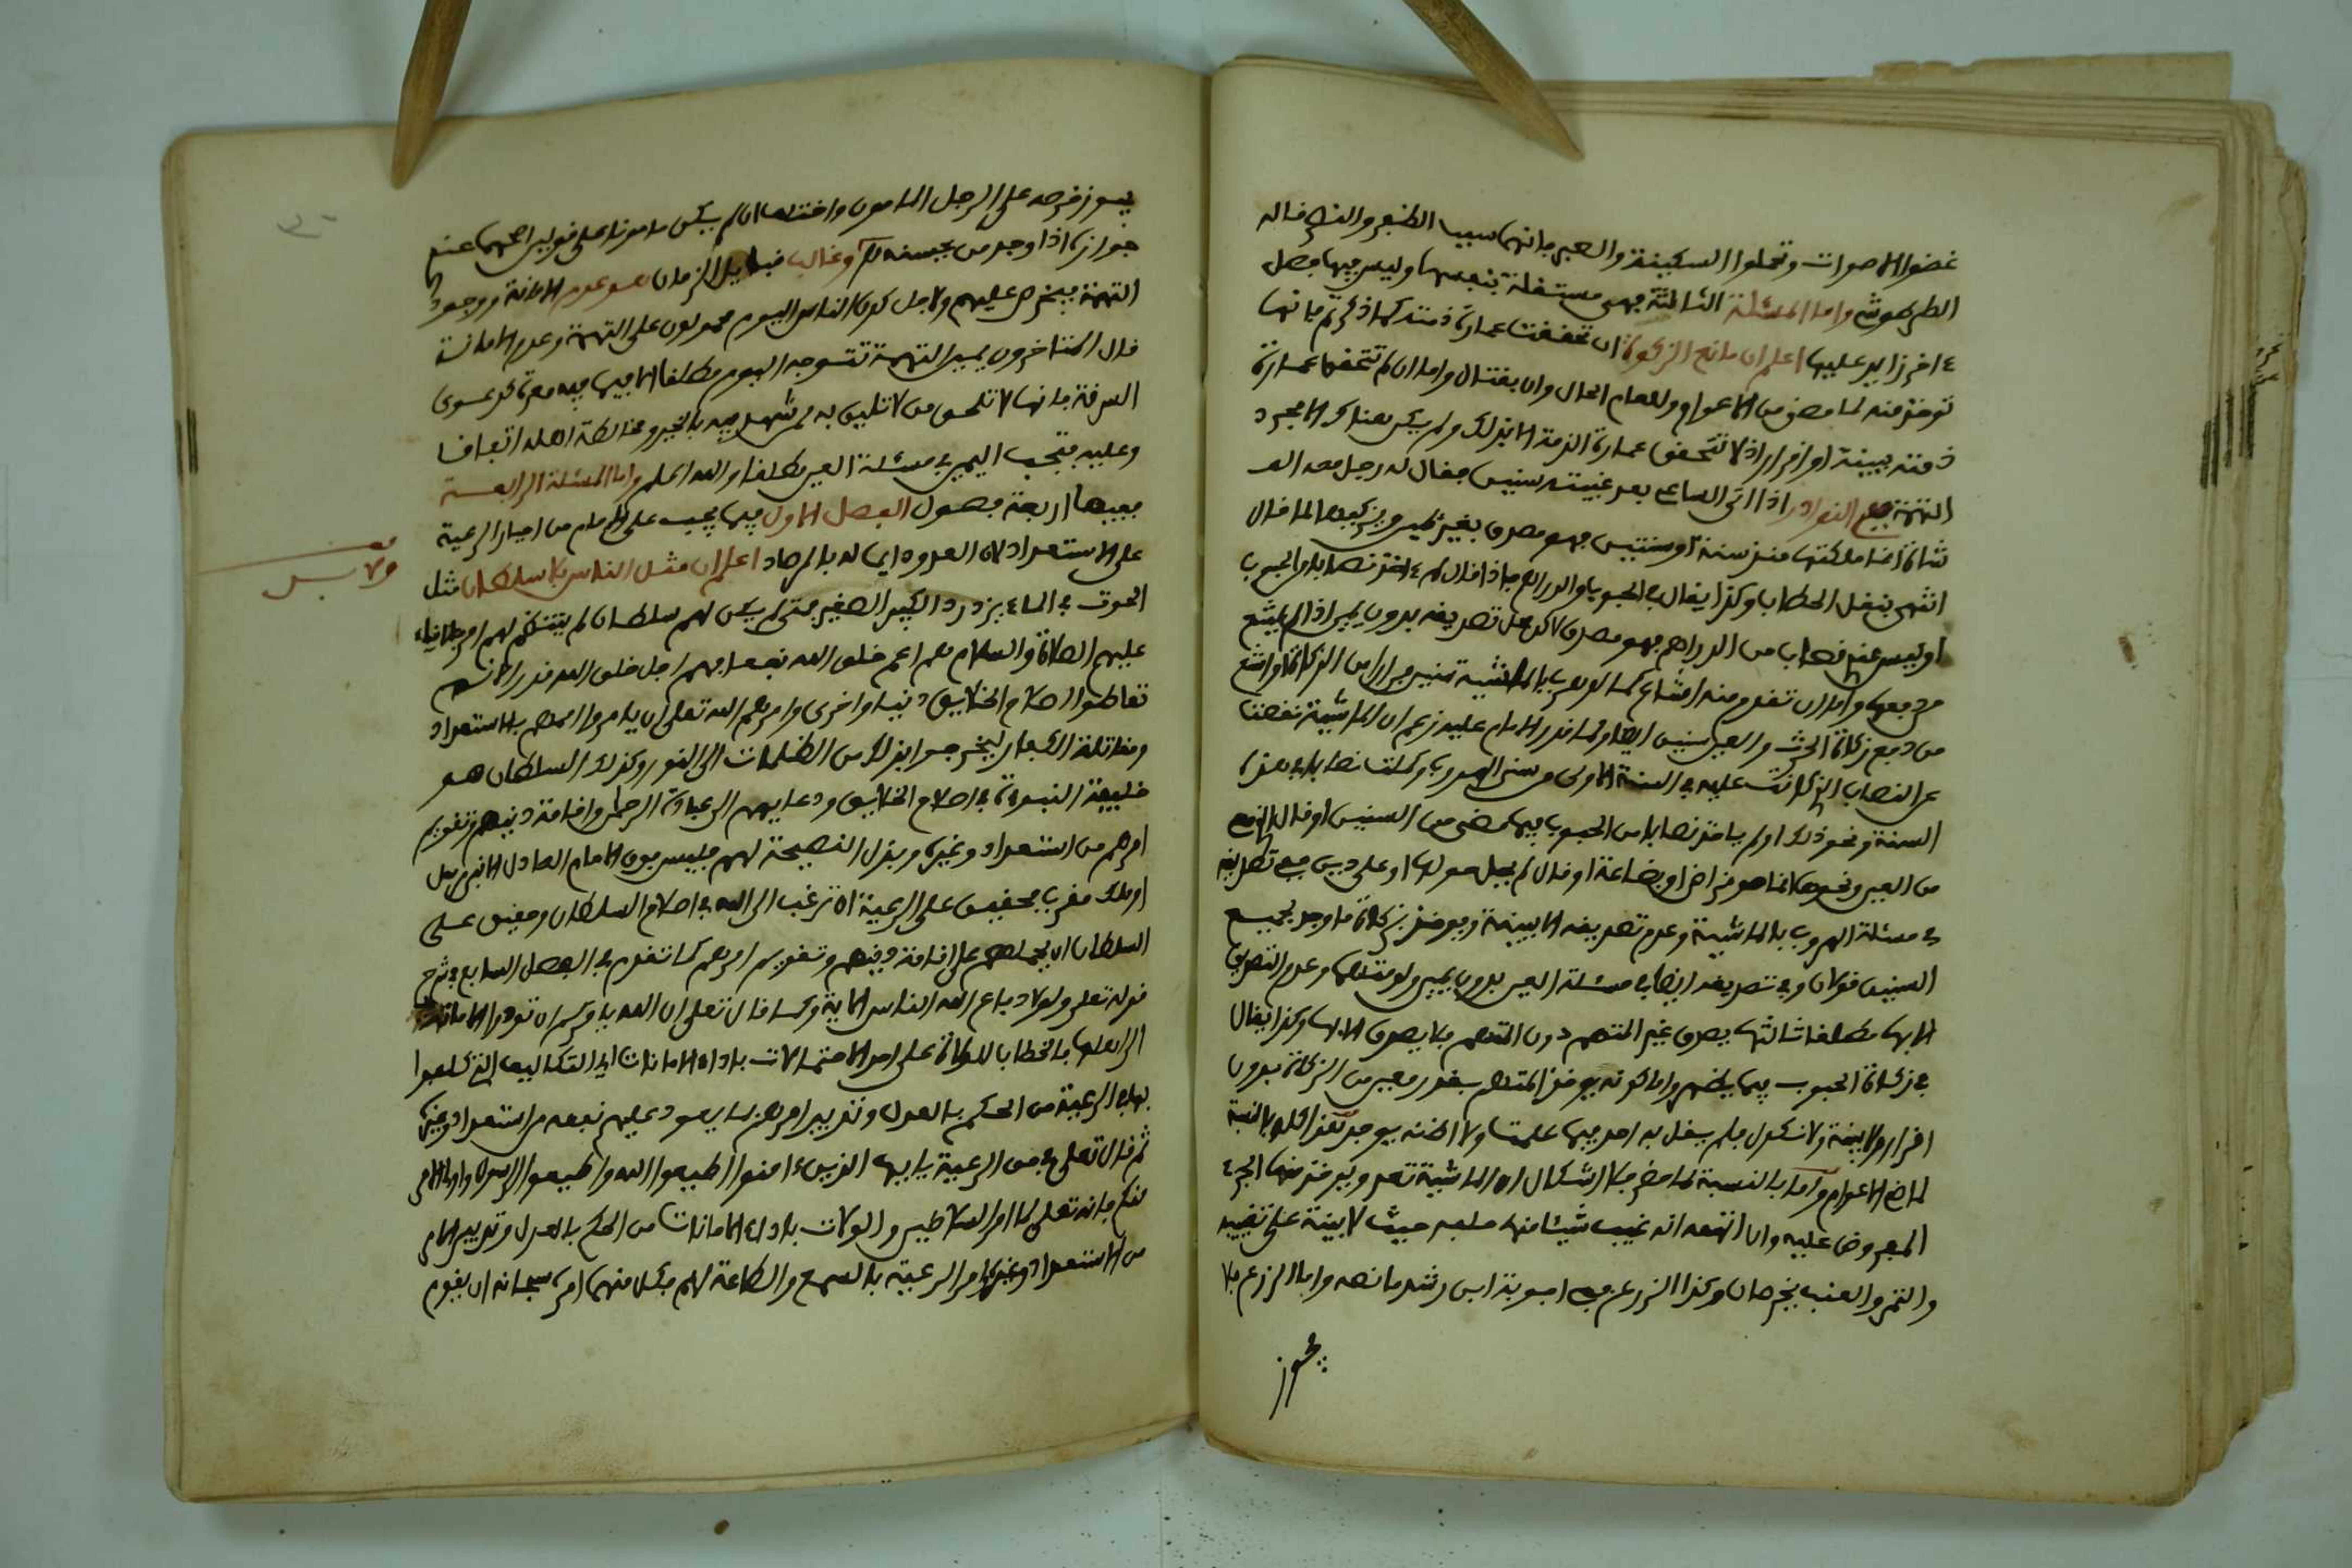 غضوا الاصوات وتحلوا السكينة والصبر فإنهما سببا الظفر والنصر قاله
الطرطوشي واما المسئلة الثالثة فهي مستقلة بنفسها وليس فيها فصل
ءاخر زايد عليها اعلم ان مانع الزكوة ان تحققت عمارة ذمته كما ذكرتم فإنها
توخذ منه لما مضى من الاعوام ولعام الحال وان بقتال واما ان لم تتحقق عمارة
ذمته ببينة او اقرار اذ لا تتحقق عمارة الذمة الا بذلك ولم يكن هناك الا مجرد
التهمة ففي النوادر اذا اتى الساعي بعد غيبته سنين فقال له رجل معه الف
شاة انما ملكتها منذ سنة او سنتين فهو مصدق بغير يمين ويزكيها لما قال
انتهى بنقل الحطاب وكذا يقال في الحبوب والدراهم فإذا قال لم ءاخذ نصابا من الحب
او ليس عندي نصاب من الدراهم فهو مصدق لاكن محل تصديقه بدون يمين اذا لم يشع
من دفع زكاة الحرث والعين سنين ايضا ولما قدر الامام عليه زعم ان الماشية نقصت
عن النصاب الذي كانت عليه في السنة الاولى من سني الهروب وكملت نصابا في هذه
السنة ونحو ذلك او لم ياخذ نصابا من الحبوب فيما مضى من السنين او قال الذي معي
من العين ونحوها انما هو قراض او بضاعة او قال لم يحل حولها او علي دين ففي تصديقه
في مسئلة الهروب بالماشية وعدم تصديقه الا ببينة ويوخذ بزكاة ما وجد بجميع
السنين قولان وفي تصديقه ايضا في مسئلة العين بدون يمين ولو متهما وعدم التصديق
الا بها مطلقا ثالثها يصدق غير المتهم دون المتهم فلا يصدق الا بها وكذا يقال
في زكاة الحبوب فيما يظهر واما كونه يوخذ المتهم بقدر معين من الزكاة بدون
اقرار ولا بينة ولا نكول فلم يقل به احد فيما علمت ولا اظنه يوجد هذا كله بالنسبة
لماضي الاعوام واما بالنسبة لما حضر فلا اشكال ان الماشية تعد ويوخذ منها الجزء
المفروض عليه وان اتهمه انه غيب شيئا منها حلفه حيث لا بينة على تغييبه
والتمر والعنب يخرصان وكذا الزرع ففي اجوبة ابن رشد ما نصه واما الزرع فلا
يجوز
يجوز خرصه على الرجل المامون واختلف ان لم يكن مامونا على قولين اصحهما عندي
جوازه اذا وجد من يحسنه اهـ وغالب قبايل الزمان هو عدم الامانة ووجود
التهمة فيخرص عليهم ولاجل كون الناس اليوم محمولون على التهمة وعدم الامانة
قال المتاخرون يمين التهمة تتوجه اليوم مطلقا الا فيما فيه معرة كدعوى
السرقة فإنها لا تلحق من لا تليق به ممن شهد فيه بالخير ومخالطة اهله اتفاقا
وعليه فتجب اليمين في مسئلة العين مطلقا والله اعلم واما المسئلة الرابعة
ففيها اربعة فصول الفصل الاول فيما يجب على الامام من اجبار الرعية
على الاستعداد لان العدو ءايل له بالمرصاد اعلم ان مثل الناس بلا سلطان مثل
الحوت في الماء يزدرد الكبير الصغير فمتى لم يكن لهم سلطان لم ينتظم لهم امر فالانبياء
عليهم الصلاة والسلام هم اعم خلق الله نفعا فهم اجل خلق الله قدرا لانهم
تعاطوا اصلاح الخلايق دنيا واخرى وامرهم الله تعلى ان يامروا اممهم بالاستعداد
ومقاتلة الكفار ليخرجوا بذلك من الظلمات الى النور وكذلك السلطان هو
خليفة النبوءة في اصلاح الخلايق ودعايهم الى عبادة الرحمان واقامة دينهم وتقويم
امرهم من استعداد وغيره وبذل النصيحة لهم فليس فوق الامام العادل الا نبي مرسل
او ملك مقرب فحقيق على الرعية ان ترغب الى الله في اصلاح السلطان وحقيق على
السلطان ان يحملهم على اقامة دينهم وتقويم امرهم كما تقدم في الفصل السابع في شرح
قوله تعلى ولولا دفاع الله الناس الاية وكما قال تعلى ان الله يامركم ان تودوا الامانات
الى اهلها فالخطاب للولاة على احد الاحتمالات باداء الامانات اي التكاليف التي كلفوا
بها في الرعية من الحكم بالعدل وتدبير امرهم بما يعود عليهم نفعه من استعداد وغيره
ثم قال تعلى في حق الرعية يايها الذين ءامنوا اطيعوا الله واطيعوا الرسول واولي الامر
منكم فإنه تعلى كما امر السلاطين والولات باداء الامانات من الحكم بالعدل وتدبير الامر
من الاستعداد وغيره امر الرعية بالسمع والطاعة لهم فكل منهما امره سبحانه ان يقوم